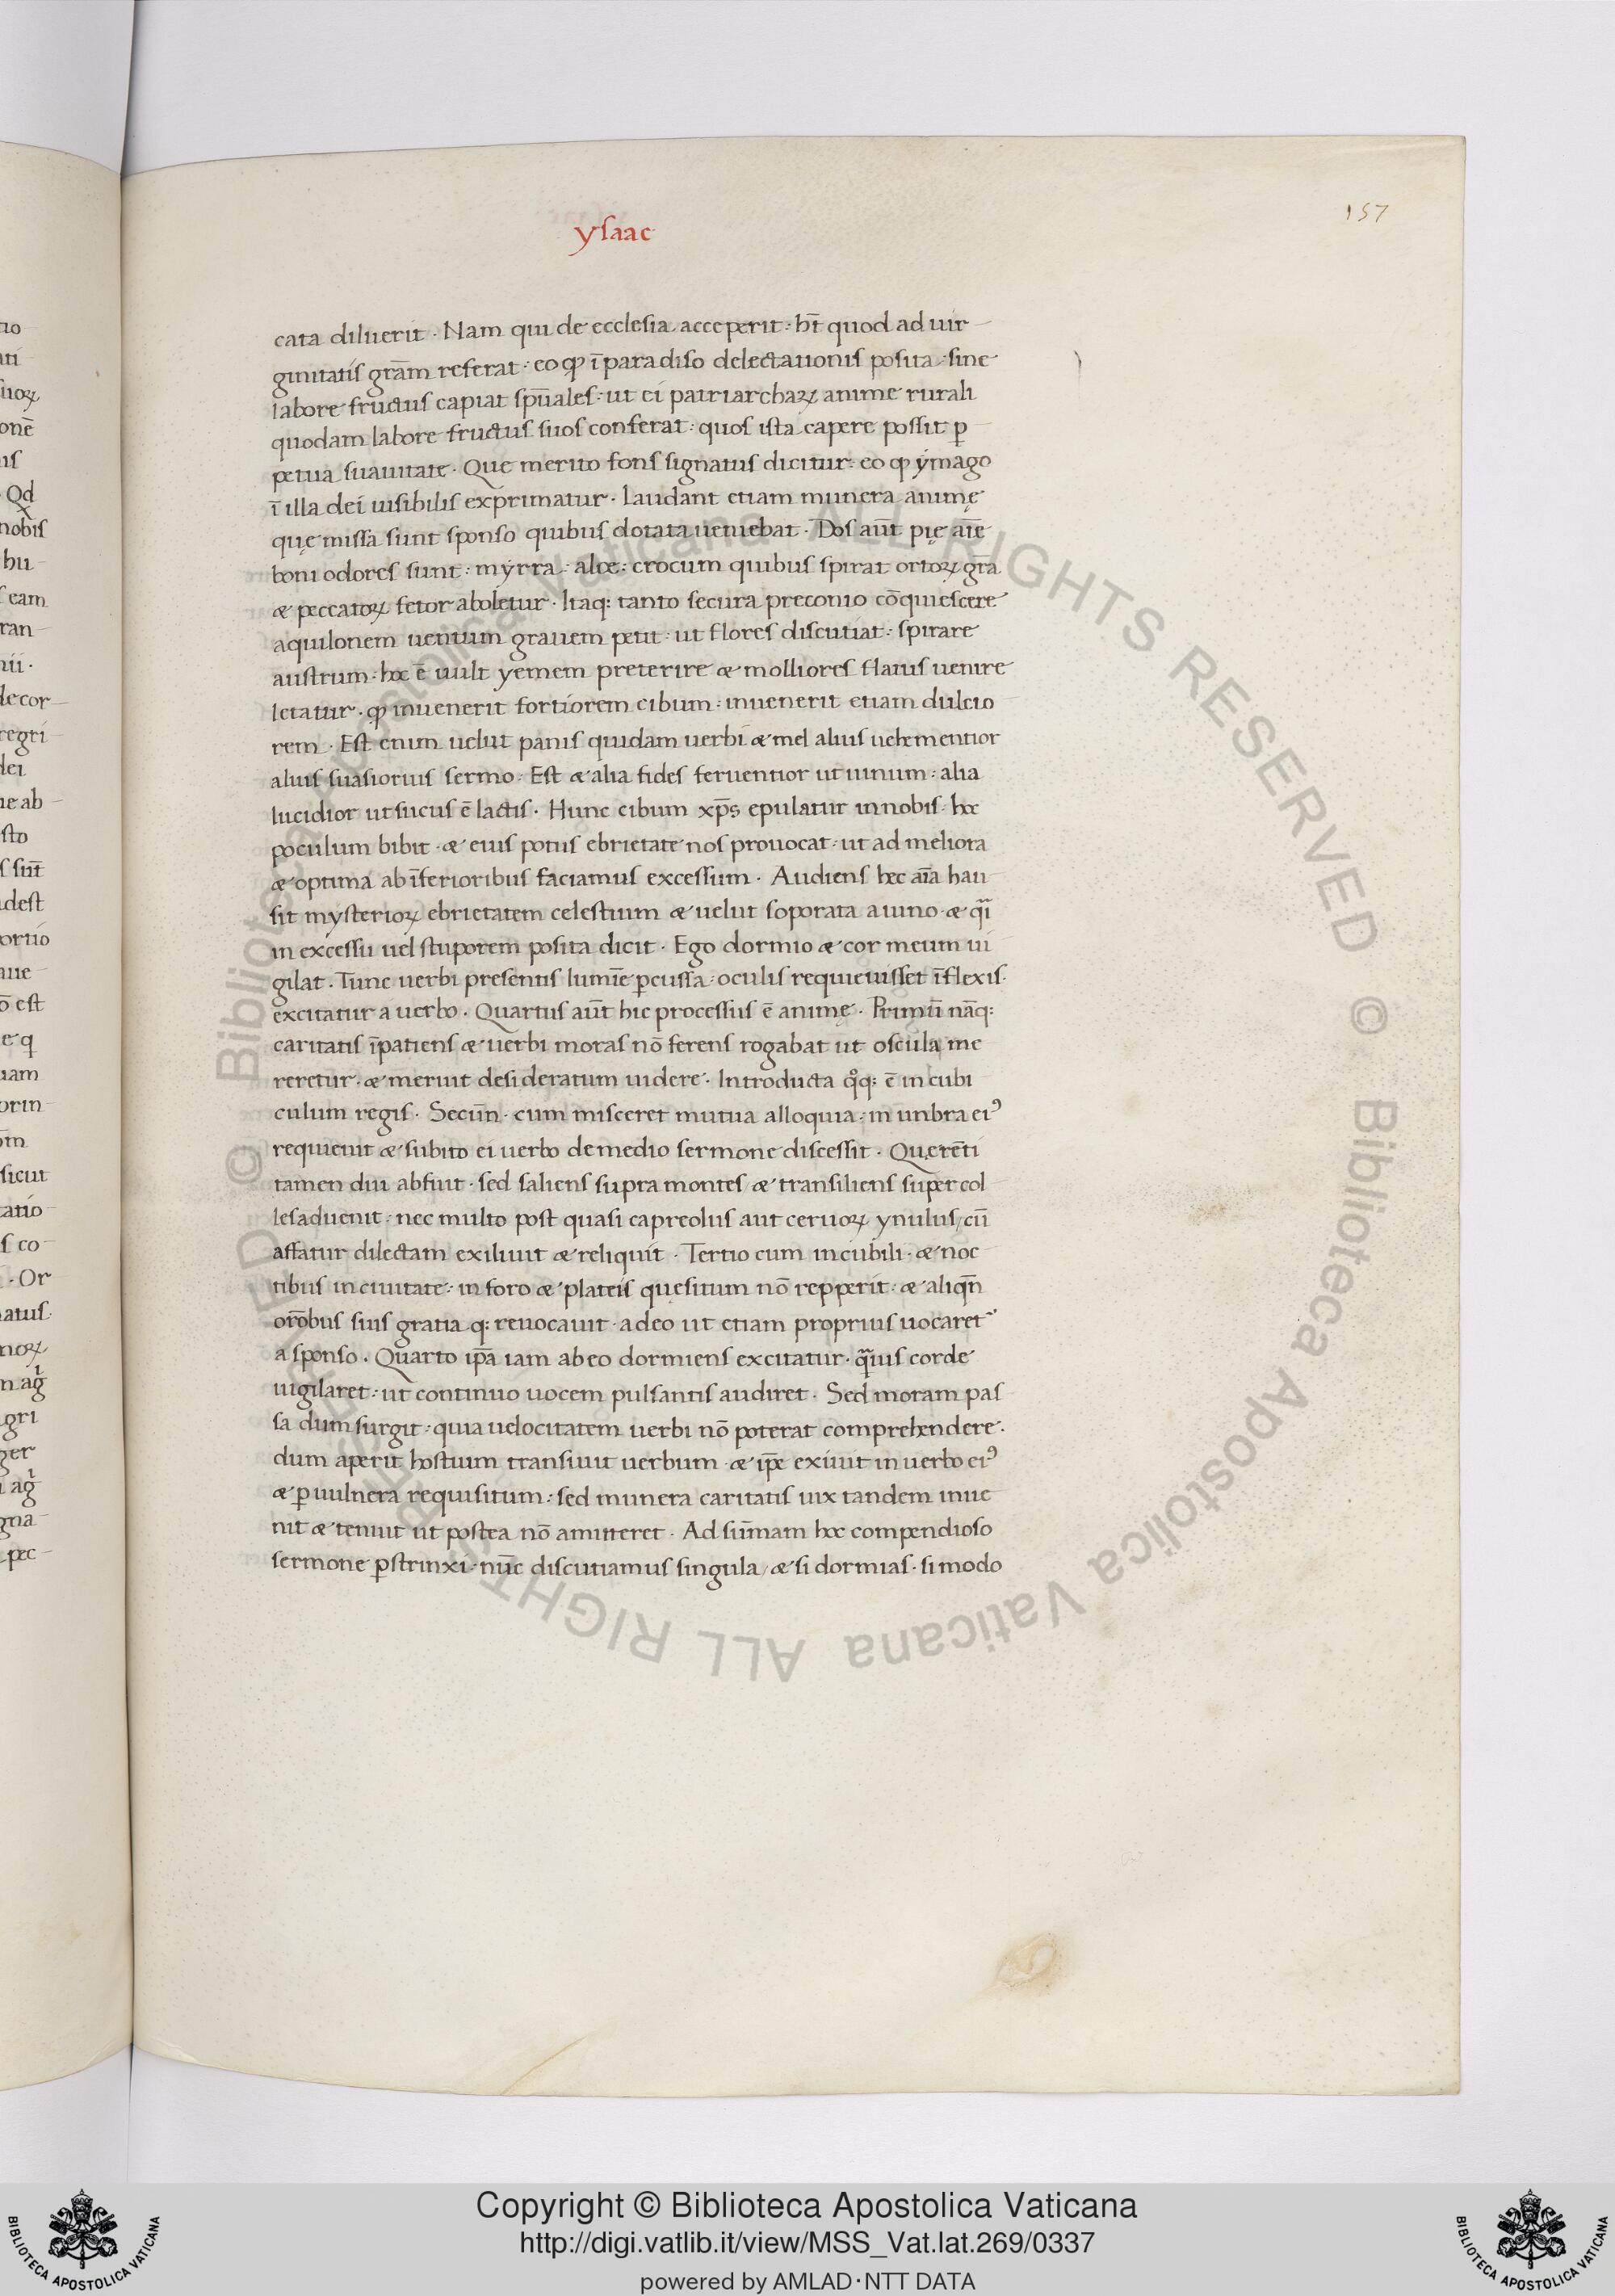 ysaac
157
cata diluerit · Nam qui de ecclesia acceperit : hr̄t quod ad uir
ginitatis grām referat : eo ꝙ ī paradiso delectationis posita : sine
labore fructus capiat spūales : ut ei patriarchaꝝ anime rurali
quodam labore fructus suos conferat : quos ista capere possit ꝑ
petua suauitate · Que merito fons signatus dicitur : eo ꝙ ymago
ī illa dei uisibilis exprimatur · laudant etiam munera animę
quę missa sunt sponso quibus dotata ueniebat · Dos aūt pię aīe
boni odores sunt : myrra : aloe : crocum quibus spirat ortoꝝ grā
æ peccatoꝝ fetor aboletur · Itaq: tanto secura preconio cōquiescere
aquilonem uentum grauem petit : ut flores discutiat : spirare
austrum : hoc ē uult yemem preterire æ molliores flatus uenire
letatur · ꝙ inuenerit fortiorem cibum : inuenerit etiam dulcio
rem · Est enim uelut panis quidam uerbi æ mel alius uehementior
alius suasorius sermo · Est æ alia fides feruentior ut uinum : alia
lucidior ut sucus ē lactis · Hunc cibum xp̄s epulatur in nobis · hoc
poculum bibit · æ eius potus ebrietate nos prouocat · ut ad meliora
æ optima ab īferioribus faciamus excessum · Audiens hec aīa hau
sit mysterioꝝ ebrietatem celestium æ uelut soporata a uino · æ q̄i
in excessu uel stuporem posita dicit · Ego dormio æ cor meum ui
gilat · Tunc uerbi presentis lumīe ꝑcussa : oculis requieuisset īflexis ·
excitatur a uerbo · Quartus aūt hic processus ē animę · Primū nāq:
caritatis īpatiens æ uerbi moras nō ferens rogabat ut oscula me
reretur · æ meruit desideratum uidere · Introducta qͦq: ē in cubi
culum regis · Secūn · cum misceret mutua alloquia : in unbra eiꝰ
requieuit æ subito ei uerbo de medio sermone discessit · Querēti
tamen diu abfuit · sed saliens supra montes æ transiliens super col
les aduenit · nec multo post quasi capreolus aut ceruoꝝ ynulus / cū
affatur dilectam exiliuit æ reliquit · Tertio cum in cubili · æ noc
tibus in ciuitate : in foro æ plateis quęsitum nō repperit : æ aliqn̄
orōbus suis gratia q: reuocauit · adeo ut etiam proprius uocaret
a sponso · Quarto ip̄a iam ab eo dormiens excitatur · qͣuis corde
uigilaret : ut continuo uocem pulsantis audiret · Sed moram pas
sa dum surgit : quia uelocitatem uerbi nō poterat comprehendere ·
dum aperit hostium transiuit uerbum · æ ip̄e exiuit in uerbo eiꝰ
æ ꝑ uulnera requisitum : sed munera caritatis uix tandem inue
nit æ tenuit ut postea nō amitteret · Ad sūmam hoc compendioso
sermone ꝑstrinxi · nūc discutiamus singula / æ si dormias · si modo
© Biblioteca Apostolica Vaticana ALL RIGHTS RESERVED
© Biblioteca Apostolica Vaticana ALL RIGHTS RESERVED
Copyright © Biblioteca Apostolica Vaticana
http://digi.vatlib.it/view/MSS_Vat.lat.269/0337
powered by AMLAD·NTT DATA
BIBLIOTECA APOSTOLICA VATICANA
BIBLIOTECA APOSTOLICA VATICANA